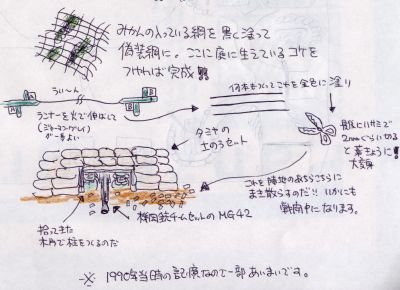 みかんの入っている網を黒く塗って
偽装網に。ここに庭に生えているコケを
つければ完成!!
うい〜ん
ランナーを火で伸ばして
(ジャーマングレイ)
が一番よい
何本もつくってこれを金色に塗り
最後にハサミで
2mmぐらいに切る
と薬きょうに!
大変身
タミヤの
土のうセット
これを陣地のあちらこちらに
まき散らすのだ!! いかにも
戦闘中になります。
機関銃チームセットのMG42
拾ってきた
木片で柱をつくるのだ
※ 1990年当時の記憶なので一部あいまいです。